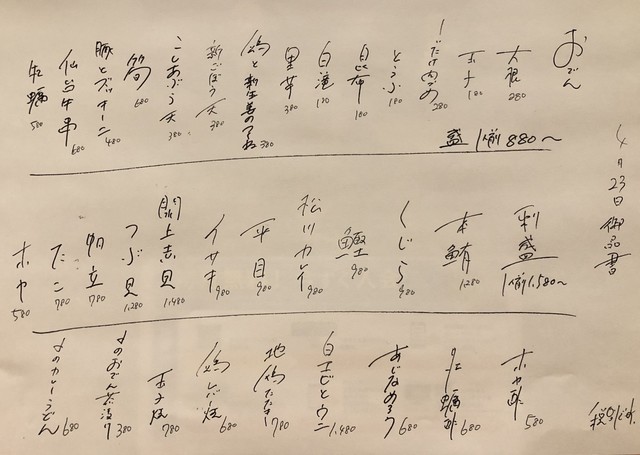 4月23日 御品書
おでん
大根 280
玉子 180
しだけ肉詰め 280
とうふ 180
昆布 180
白滝 180
里芋 380
鶏と新生姜のつみれ 380
新ごぼう天 380
こしあぶら天 380
筍 680
豚とズッキーニ 480
仙台牛串 680
生牡蠣 580
盛 1人前 880〜
刺盛 1人前 1,580〜
本鮪 1,280
くじら 980
鰹 980
松川カレイ 980
平目 980
イサキ 980
閖上赤貝 1,480
つぶ貝 1,280
帆立 780
たこ 780
ホヤ 580
ホヤ酢 580
生牡蠣酢 680
あじなめろう 680
白エビとウニ 1,480
地鶏たたき 780
鶏レバ焼 680
玉子焼 780
〆のおでん茶漬け 380
〆のカレーうどん 680
税別です。